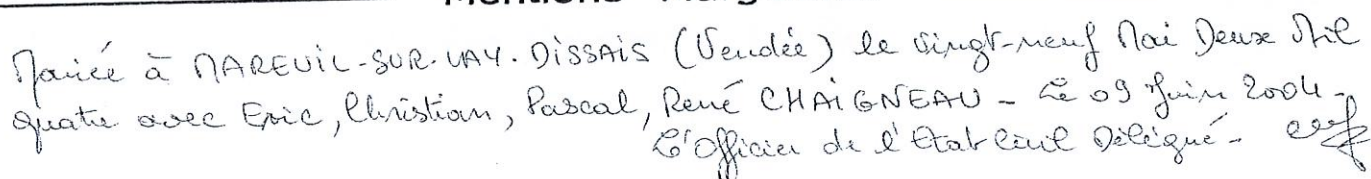 Mariée à MAREUIL-SUR-LAY-DISSAIS (Vendée) le vingt-neuf Mai Deux Mil
quatre avec Eric, Christian, Pascal, René CHAIGNEAU - Le 09 Juin 2004 -
L'Officier de l'Etat Civil Délégué -